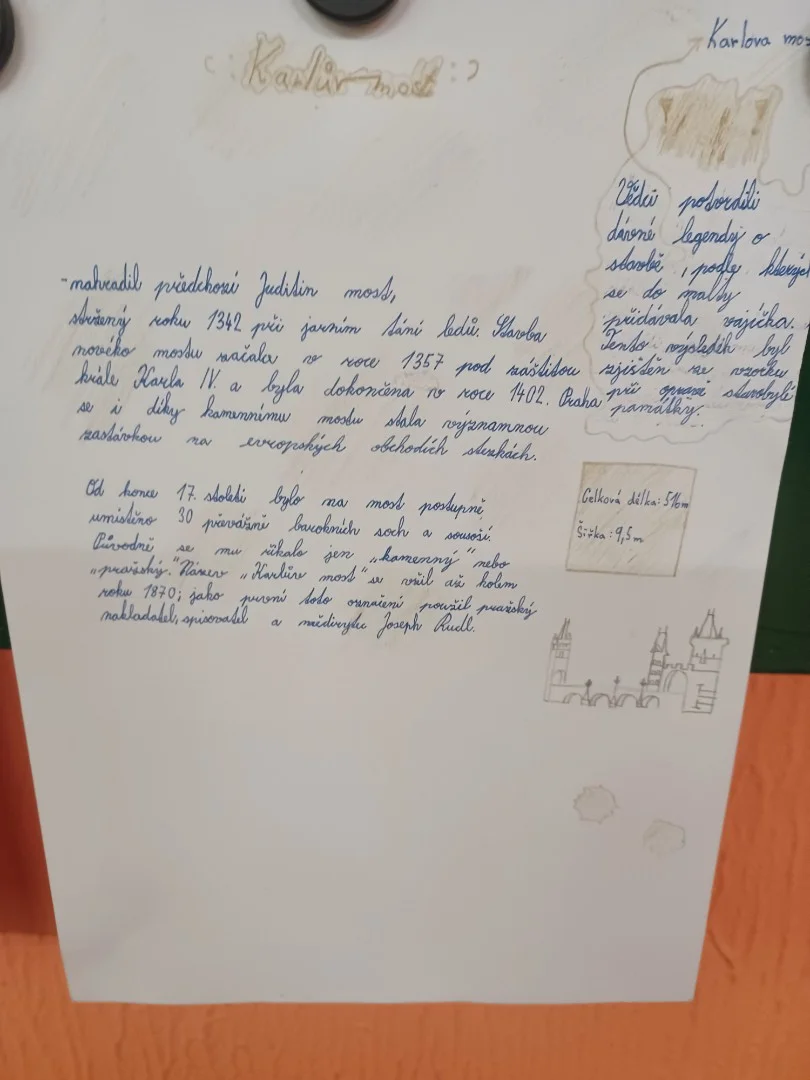 Karlův most
Karlova mo
-nahradil předchozí Juditin most,
stržený roku 1342 při jarním tání ledů. Stavba
nového mostu začala v roce 1357 pod záštitou
krále Karla IV. a byla dokončena v roce 1402. Praha
se i díky kamennímu mostu stala významnou
zastávkou na evropských obchodích stezkách.
Od konce 17. století bylo na most postupně
umístěno 30 převážně barokních soch a sousoší.
Původně se mu říkalo jen „kamenný" nebo
„pražský." Název „Karlův most" se vžil až kolem
roku 1870; jako první toto označení použil pražský
nakladatel, spisovatel a mědirytec Joseph Rudl.
Vědci potvrdili
dávné legendy o
stavbě, podle kterých
se do malty
přidávala vajíčka.
Tento výsledek byl
zjištěn ze vzorku
při opravě starobylé
památky.
Celková délka: 516m
Šířka: 9,5m